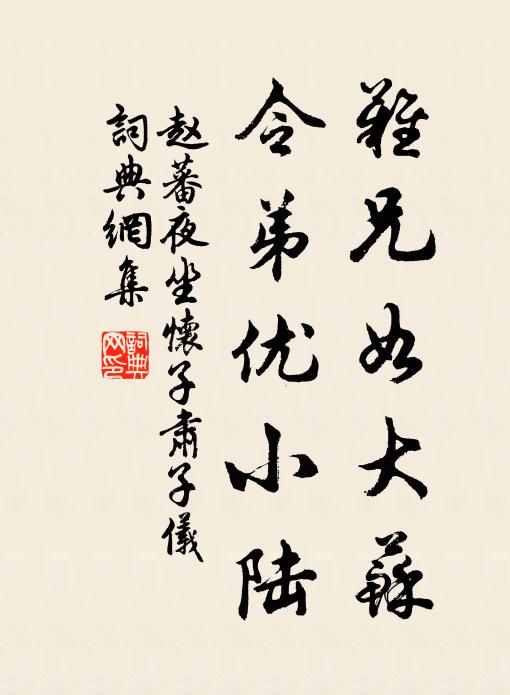 難兄如大蘇
令弟优小陆
赵蕃夜坐懷子肅子儀
詞典網集
詞典
网印